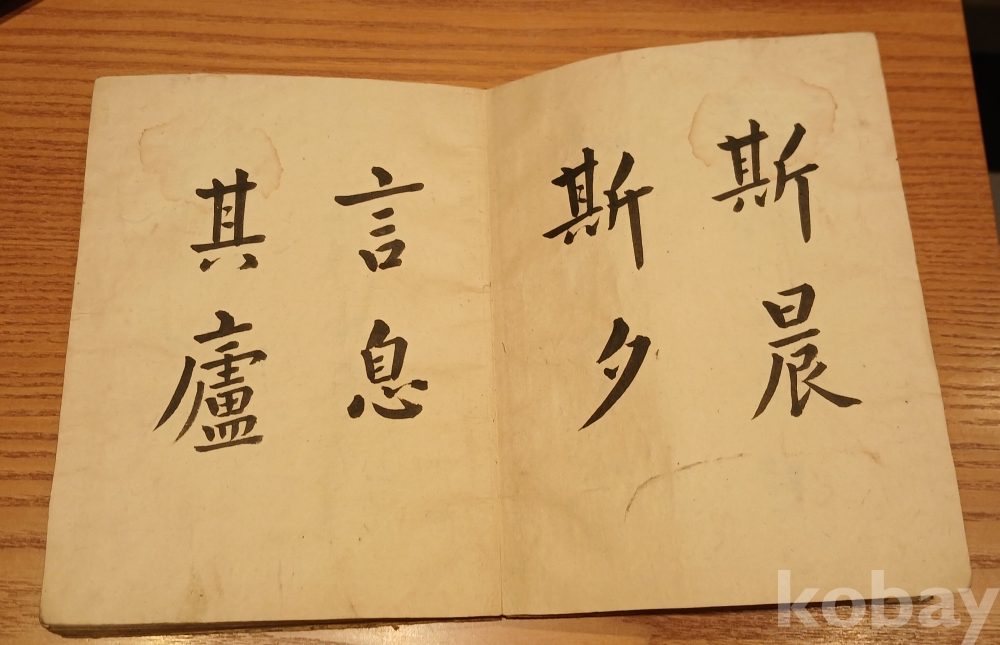 斯晨
斯夕
言息
其廬
kobay